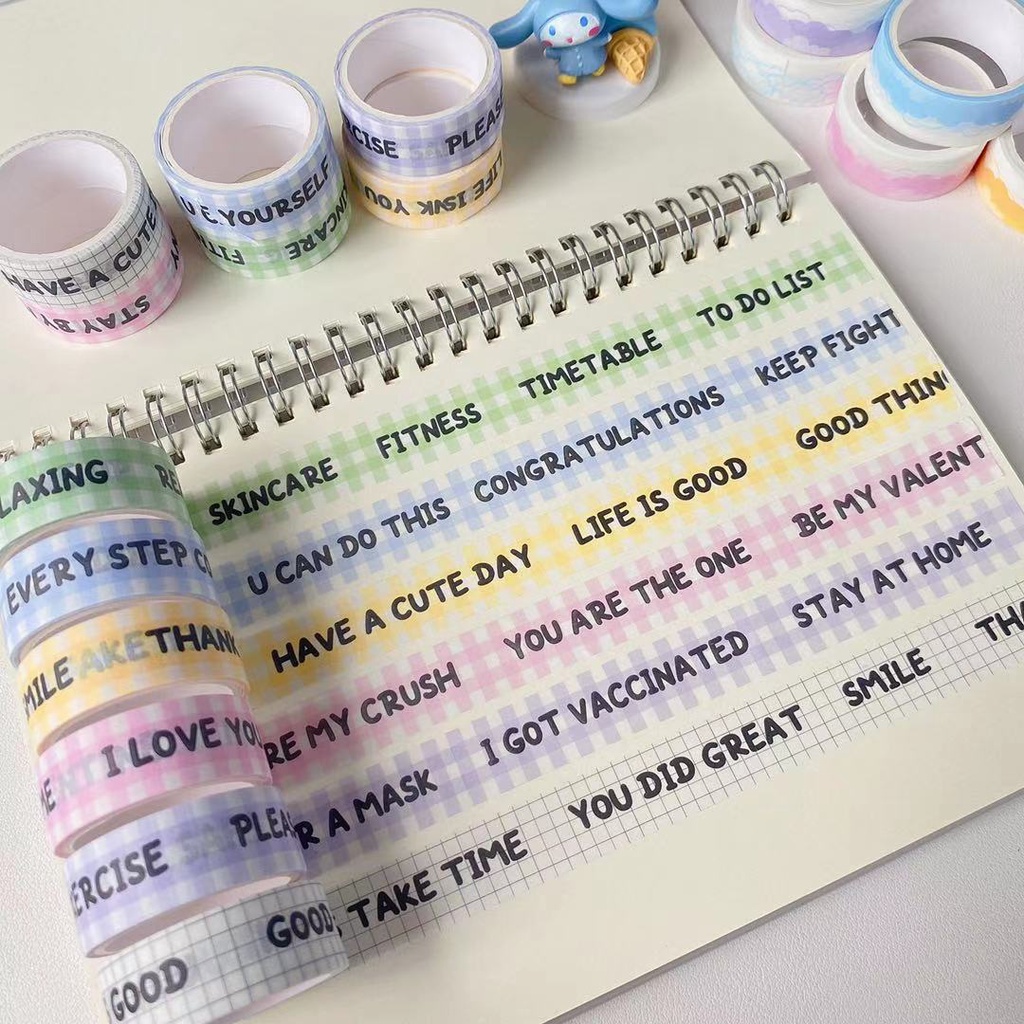 CISE PLEAS
LIFE IS
YOU
U
YOURSELF
FIT
CARE
HAVE A CUTE
STAY
TO DO LIST
TIMETABLE
FITNESS
SKINCARE
LAXING RE
KEEP FIGHT
CONGRATULATIONS
U CAN DO THIS
EVERY STEP CO
GOOD THIN
LIFE IS GOOD
HAVE A CUTE DAY
MILE AKE THANK
BE MY VALENT
YOU ARE THE ONE
RE MY CRUSH
ME I LOVE YOU
STAY AT HOME
I GOT VACCINATED
R A MASK
ERCISE PLEAS
TH
SMILE
YOU DID GREAT
TAKE TIME
GOOD
GOOD